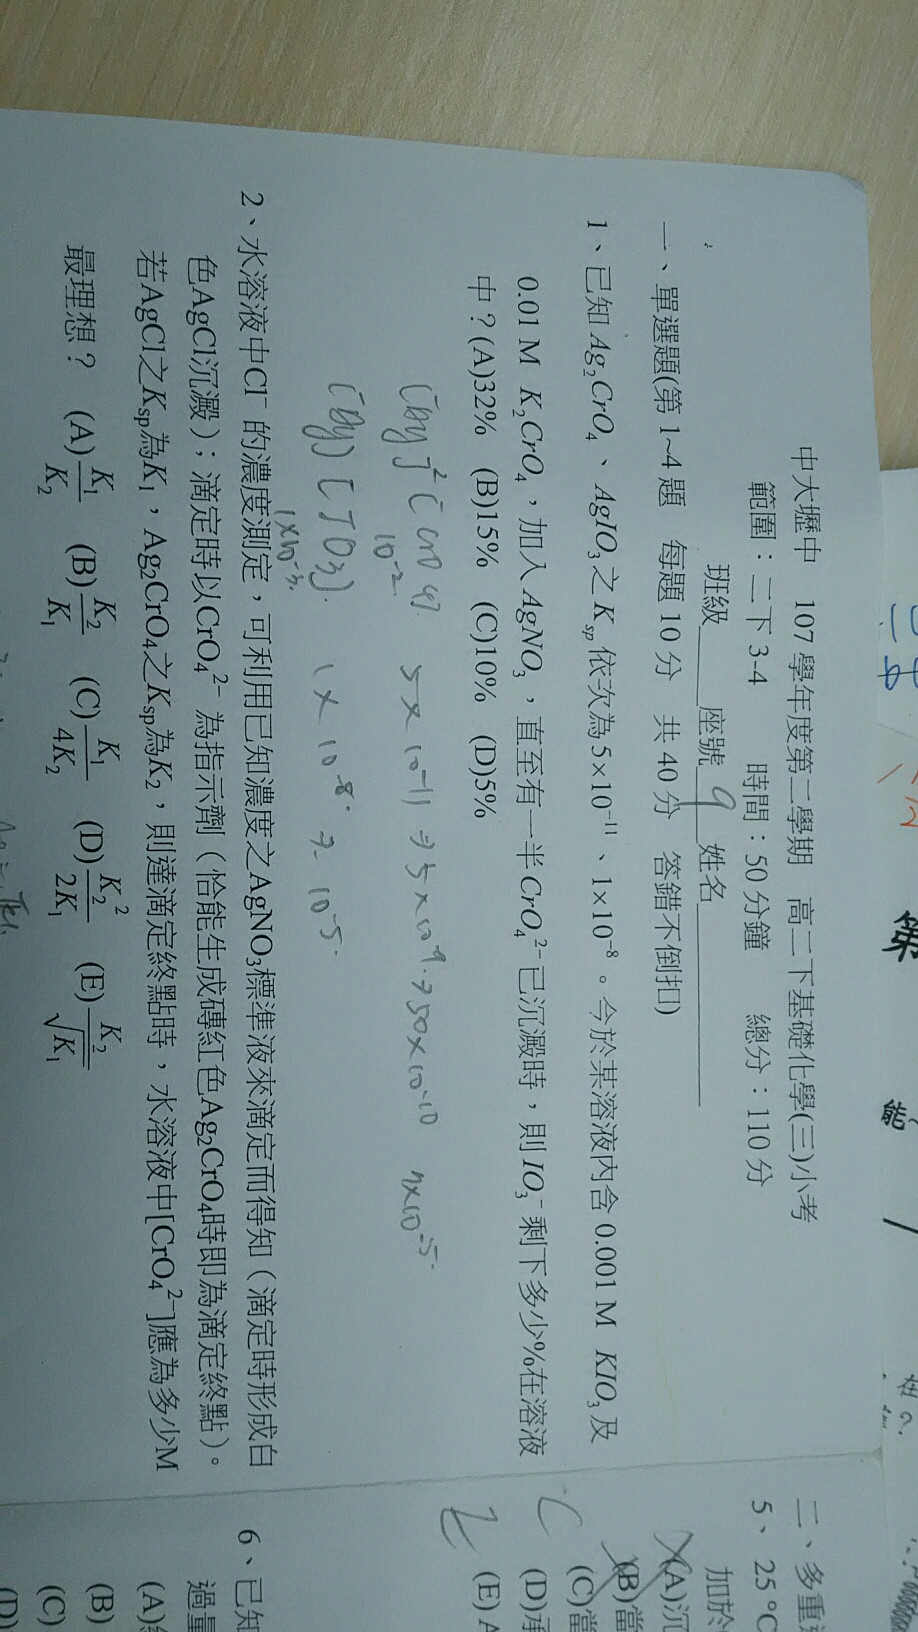 中大壢中 107 學年度第二學期 高二下基礎化學(三)小考
範圍：二下 3-4 時間：50 分鐘 總分：110 分
班級____座號 9 姓名__________
一、單選題(第 1~4 題 每題 10 分 共 40 分 答錯不倒扣)
1、已知 Ag₂CrO₄、AgIO₃之 Ksp 依次為 5×10⁻¹¹、1×10⁻⁸。今於某溶液內含 0.001 M KIO₃及
0.01 M K₂CrO₄，加入 AgNO₃，直至有一半 CrO₄²⁻已沉澱時，則 IO₃⁻剩下多少%在溶液
中？(A)32% (B)15% (C)10% (D)5%
10⁻²
5×10⁻¹¹ ⇒ 5×10⁻⁹ ⇒ 50×10⁻¹⁰ 7×10⁻⁵
1×10⁻⁸ ⇒ 10⁻⁵
1×10⁻³
2、水溶液中Cl⁻ 的濃度測定，可利用已知濃度之AgNO₃標準液來滴定而得知（滴定時形成白
色AgCl沉澱）；滴定時以CrO₄²⁻ 為指示劑（恰能生成磚紅色Ag₂CrO₄時即為滴定終點）。
若AgCl之Ksp為K₁，Ag₂CrO₄之Ksp為K₂，則達滴定終點時，水溶液中[CrO₄²⁻]應為多少M
最理想？ (A) K₁/K₂ (B) K₂/K₁ (C) K₁/4K₂ (D) K₂²/2K₁ (E) K₂/√K₁
二、多重
5、25℃
加於
(A)沉
(B)當
(C)當
(D)承
(E)
6、已知
過量
(A)
(B)
(C)
(D)
第
能